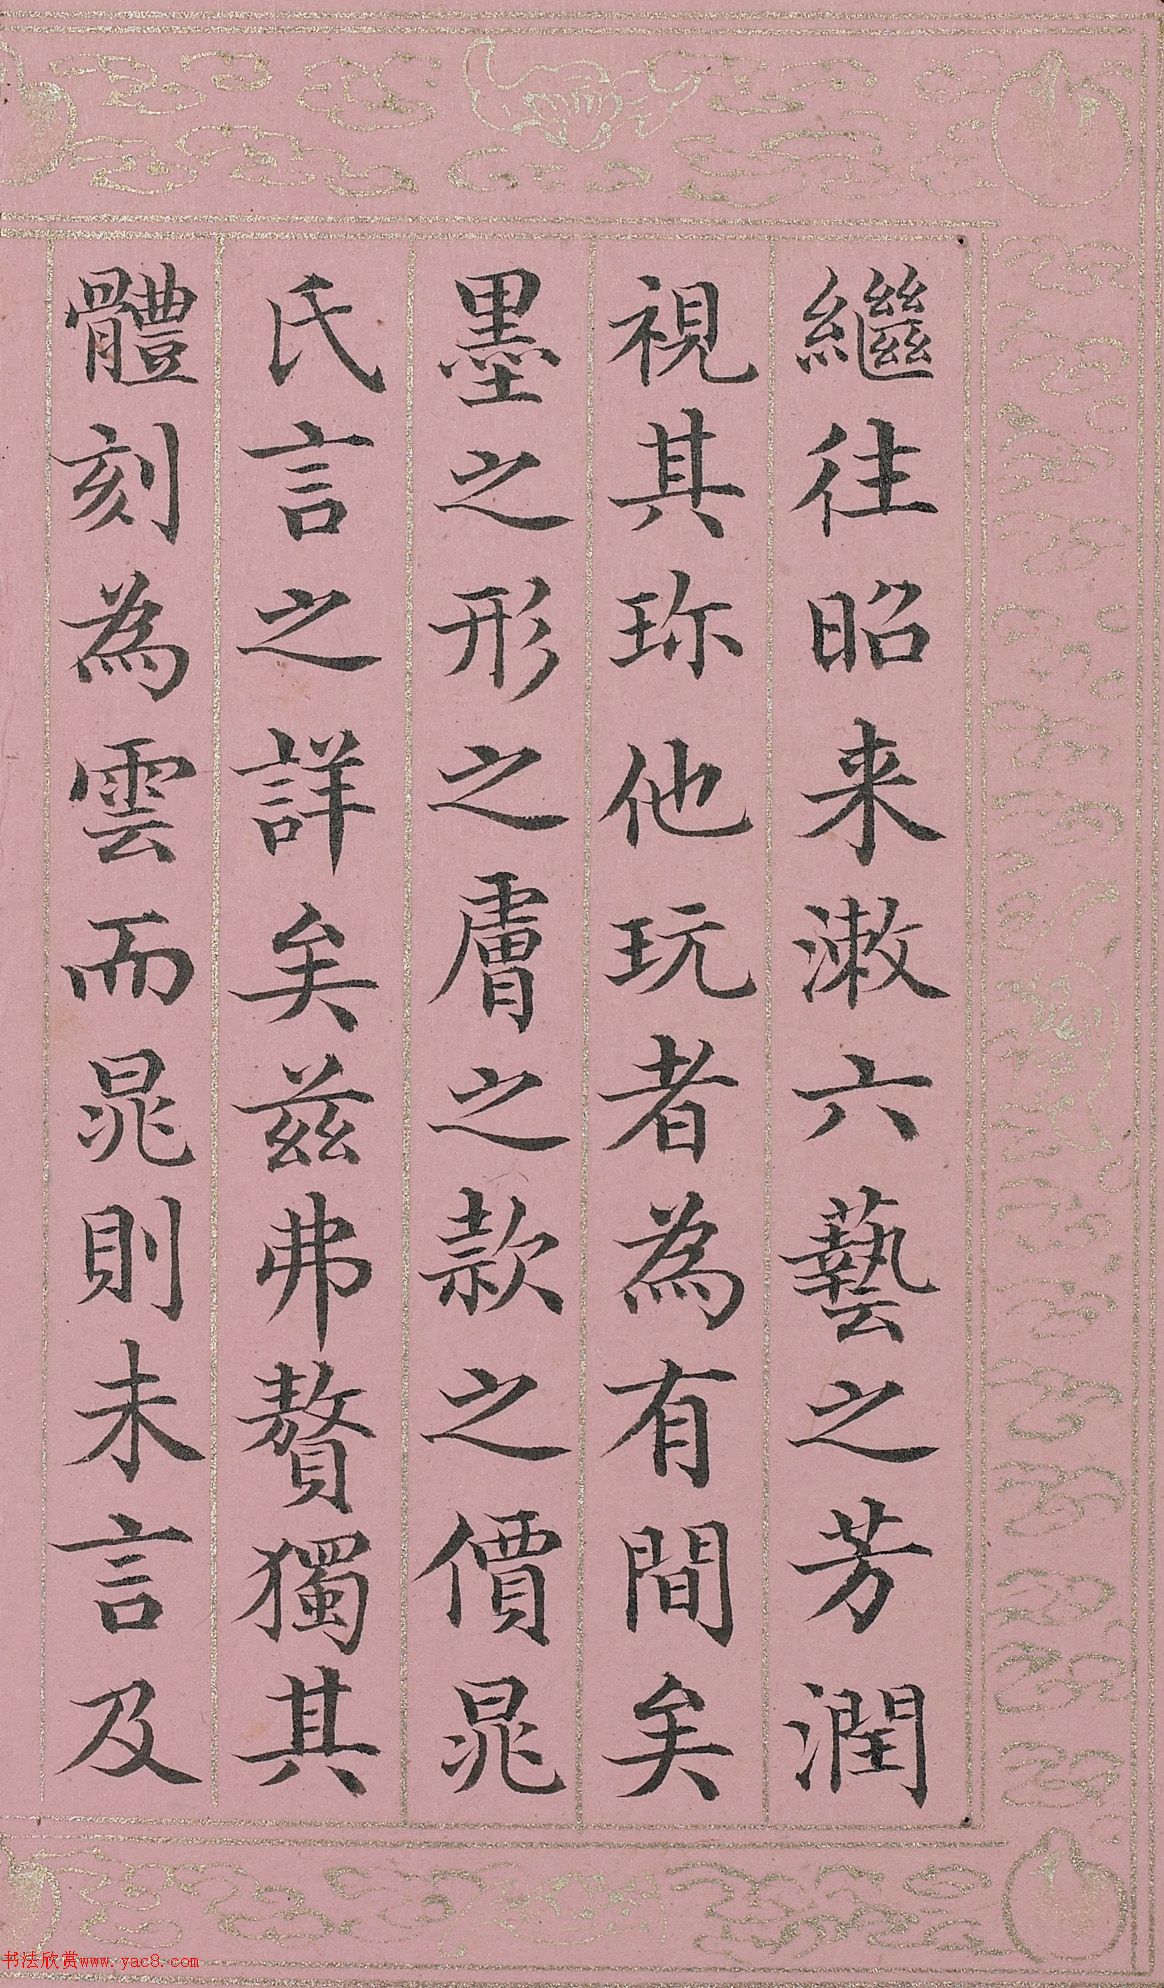 繼往昭来漱六藝之芳潤
視其珎他玩者為有間矣
墨之形之膚之款之價晁
氏言之詳矣茲弗贅獨其
體刻為雲而晁則未言及
书法欣赏www.yac8.com